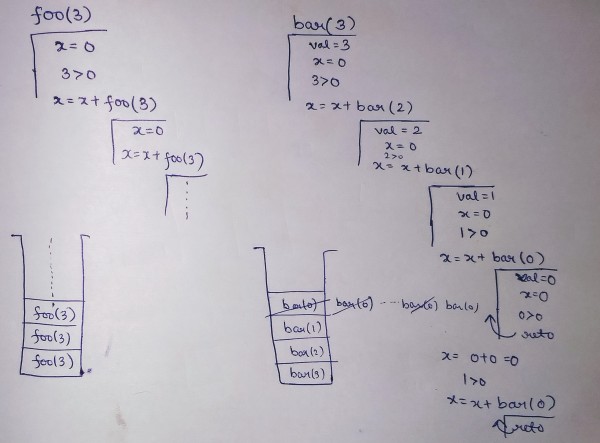 foo(3)
x = 0
3>0
x = x + foo(3)
x=0
x = x + foo(3)
foo(3)
foo(3)
foo(3)
bar(3)
val = 3
x = 0
3>0
x = x + bar(2)
val = 2
x = 0
2>0
x = x + bar(1)
val=1
x=0
1>0
x = x + bar(0)
val=0
x=0
0>0
ret 0
x = 0+0 =0
1>0
x = x + bar(0)
ret 0
bar(0) bar(0) ---- bar(0) bar(0)
bar(1)
bar(2)
bar(3)